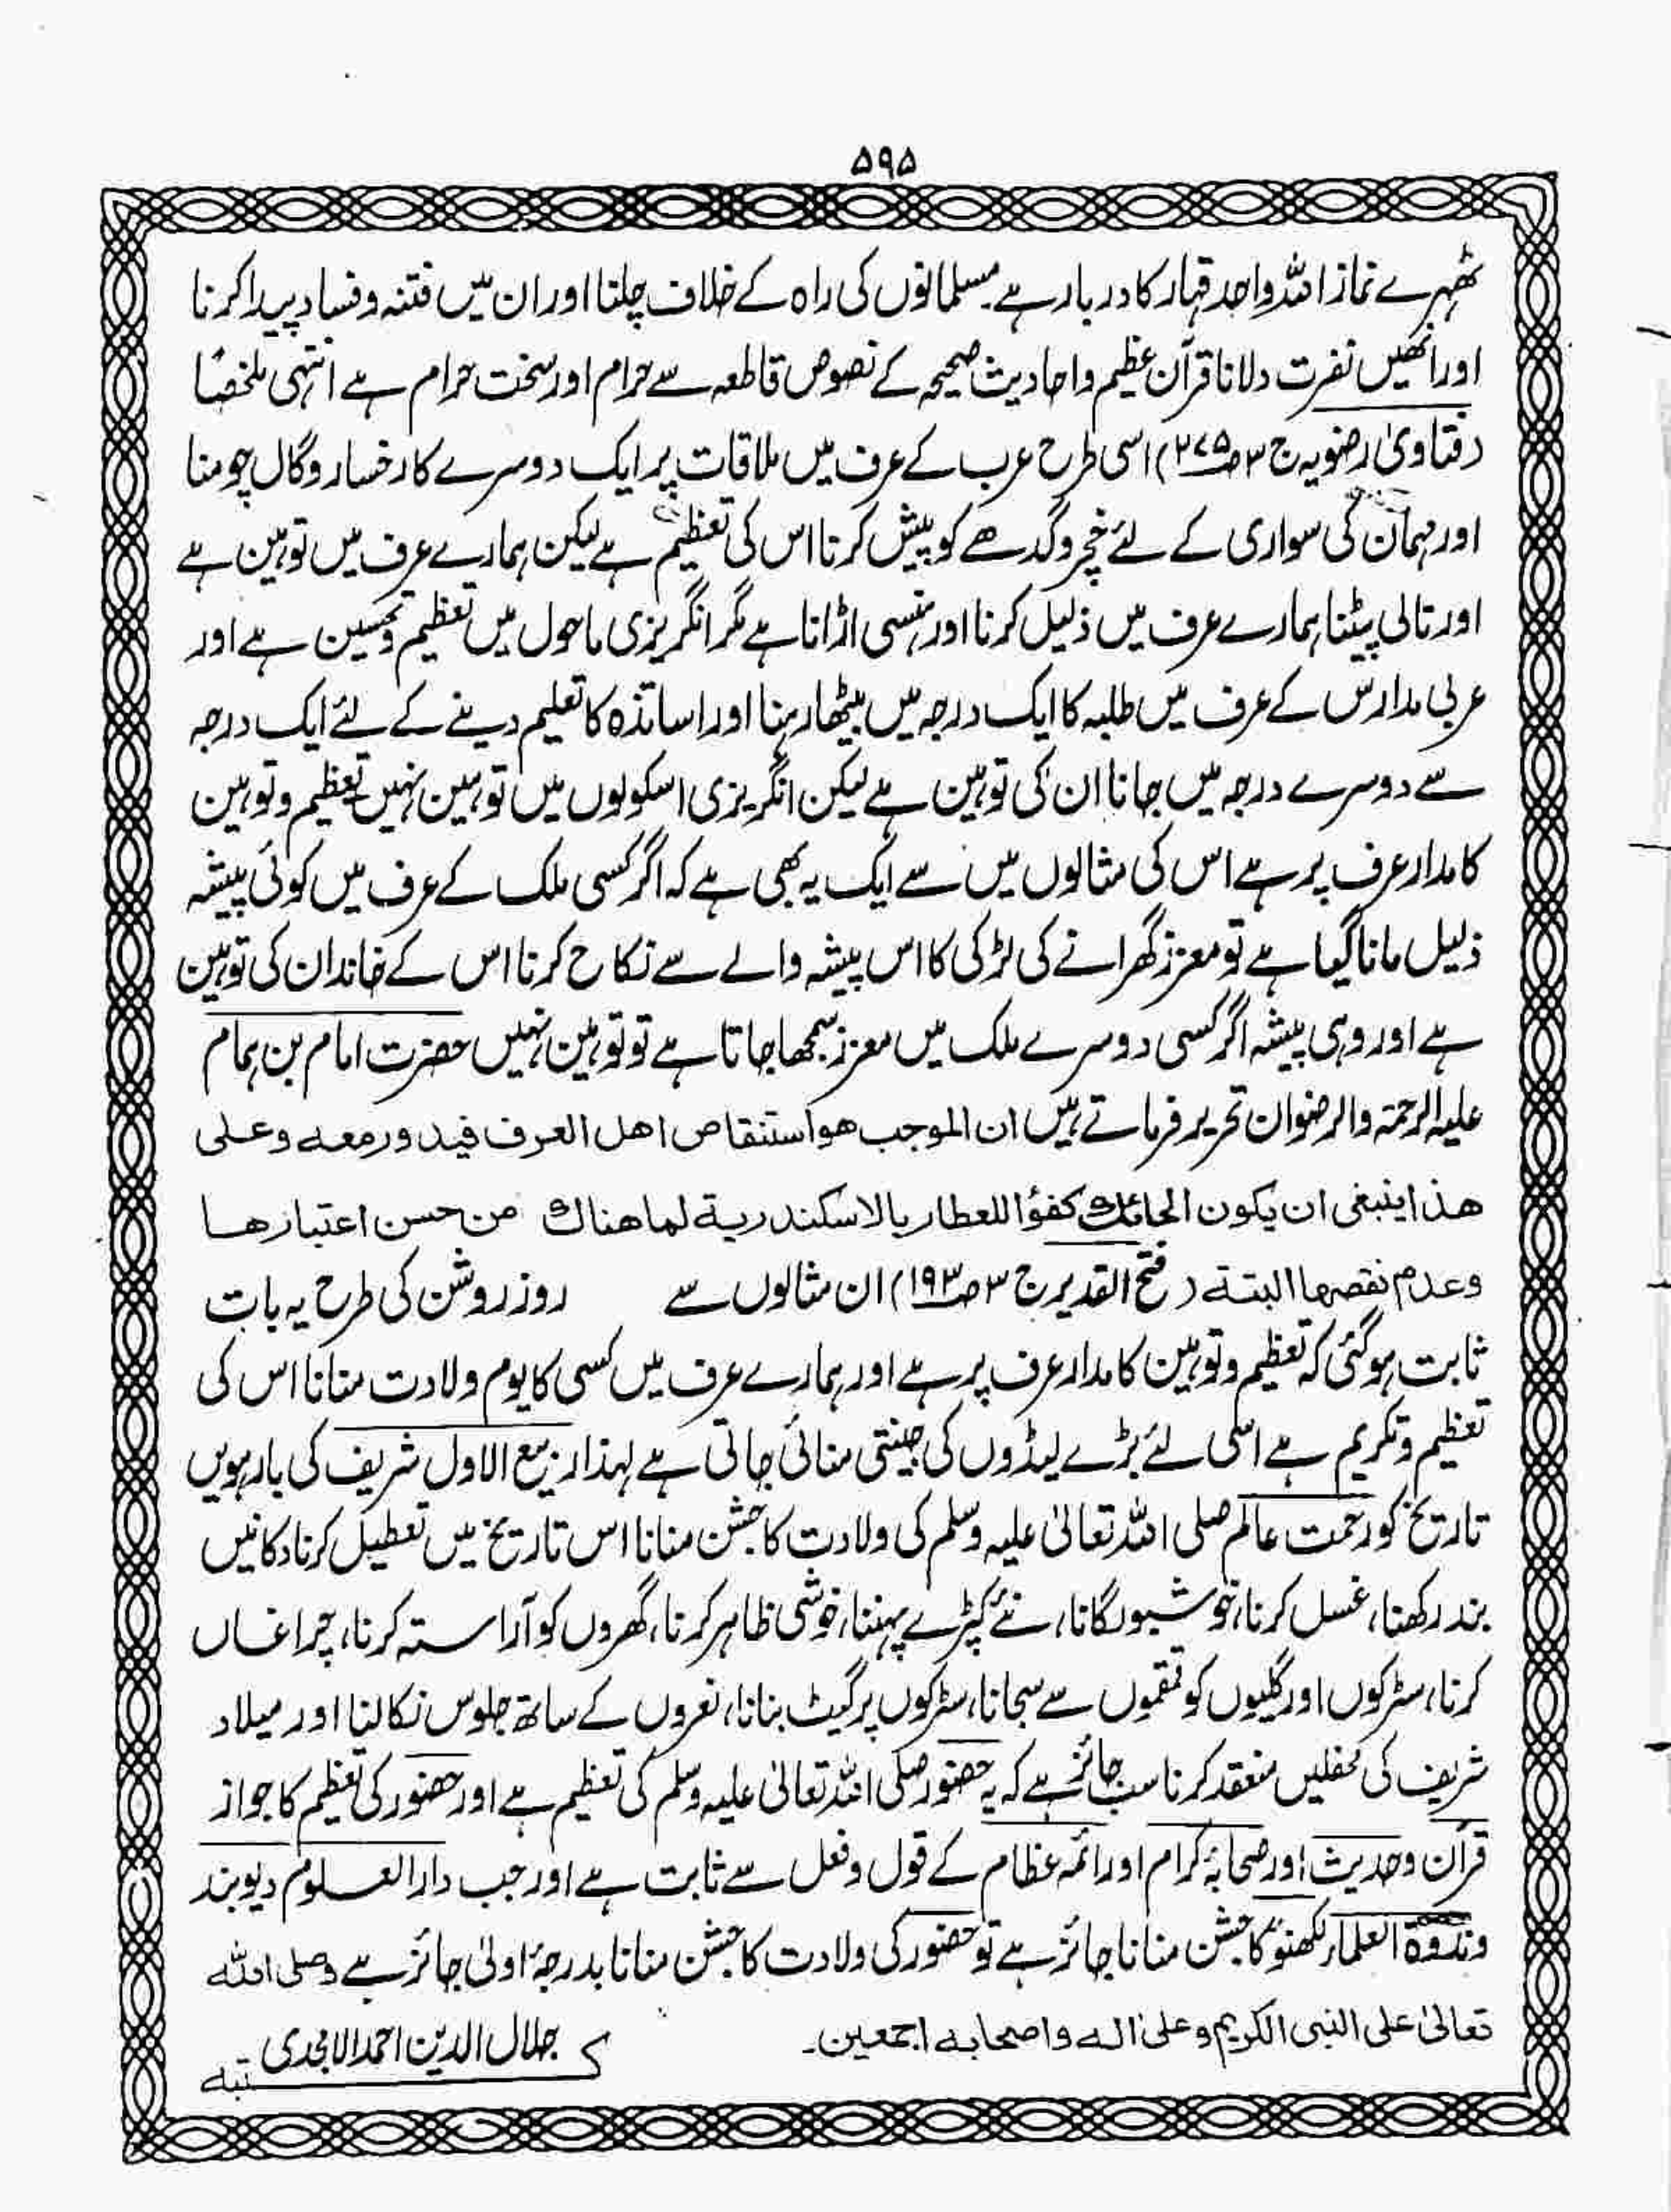 ۵۹۵
ٹھہرے نماز اللہ واحد قہار کا دربار ہے مسلمانوں کی راہ کے خلاف چلنا اور ان میں فتنہ و فساد پیدا کرنا
اور انھیں نفرت دلانا قرآن عظیم و احادیث صحیحہ کے نصوص قاطعہ سے حرام اور سخت حرام ہے انتہی ملخصًا
(فتاویٰ رضویہ ج ۳ ص ۲۷۵) اسی طرح عرب کے عرف میں ملاقات پر ایک دوسرے کا رخسار و گال چومنا
اور مہمان کی سواری کے لئے خچر و گدھے کو پیش کرنا اس کی تعظیم ہے لیکن ہمارے عرف میں توہین ہے
اور تالی پیٹنا ہمارے عرف میں ذلیل کرنا اور ہنسی اڑانا ہے مگر انگریزی ماحول میں تعظیم و تحسین ہے اور
عربی مدارس کے عرف میں طلبہ کا ایک درجہ میں بیٹھا رہنا اور اساتذہ کا تعلیم دینے کے لئے ایک درجہ
سے دوسرے درجہ میں جانا ان کی توہین ہے لیکن انگریزی اسکولوں میں توہین نہیں تعظیم و توہین
کا مدار عرف پر ہے اس کی مثالوں میں سے ایک یہ بھی ہے کہ اگر کسی ملک کے عرف میں کوئی پیشہ
ذلیل مانا گیا ہے تو معزز گھرانے کی لڑکی کا اس پیشہ والے سے نکاح کرنا اس کے خاندان کی توہین
ہے اور وہی پیشہ اگر کسی دوسرے ملک میں معزز سمجھا جاتا ہے تو توہین نہیں حضرت امام بن ہمام
علیہ الرحمۃ والرضوان تحریر فرماتے ہیں ان الموجب هو استنقاص اهل العرف فيدور معه وعلى
هذا ينبغى ان يكون الحائك كفؤا للعطار بالاسكندرية لما هناك من حسن اعتبارها
وعدم نقصها البتة (فتح القدیر ج ۳ ص ۱۹۳) ان مثالوں سے روز روشن کی طرح یہ بات
ثابت ہو گئی کہ تعظیم و توہین کا مدار عرف پر ہے اور ہمارے عرف میں کسی کا یوم ولادت منانا اس کی
تعظیم و تکریم ہے اسی لئے بڑے لیڈروں کی جینتی منائی جاتی ہے لہذا ربیع الاول شریف کی بارہویں
تاریخ کو رحمت عالم صلی اللہ تعالیٰ علیہ وسلم کی ولادت کا جشن منانا اس تاریخ میں تعطیل کرنا دکانیں
بند رکھنا، غسل کرنا، خوشبو لگانا، نئے کپڑے پہننا، خوشی ظاہر کرنا، گھروں کو آراستہ کرنا، چراغاں
کرنا، سڑکوں اور گلیوں کو قمقموں سے سجانا، سڑکوں پر گیٹ بنانا، نعروں کے ساتھ جلوس نکالنا اور میلاد
شریف کی محفلیں منعقد کرنا سب جائز ہے کہ یہ حضور صلی اللہ تعالیٰ علیہ وسلم کی تعظیم ہے اور حضور کی تعظیم کا جواز
قرآن و حدیث اور صحابۂ کرام اور ائمہ عظام کے قول و فعل سے ثابت ہے اور جب دار العلوم دیوبند
و ندوۃ العلماء لکھنؤ کا جشن منانا جائز ہے تو حضور کی ولادت کا جشن منانا بدرجۂ اولیٰ جائز ہے وصلی اللہ
تعالیٰ علی النبی الکریم وعلیٰ الہ واصحابہ اجمعین۔
کتبہ جلال الدین احمد الامجدی